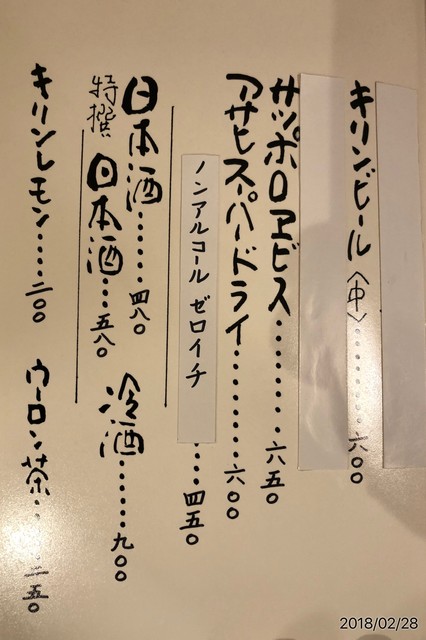 キリンビール(中)………六〇〇
サッポロヱビス………六五〇
アサヒスーパードライ………六〇〇
ノンアルコール ゼロイチ……四五〇
日本酒……四八〇
冷酒……九〇〇
特撰 日本酒…五八〇
キリンレモン……二〇〇
ウーロン茶……二五〇
2018/02/28